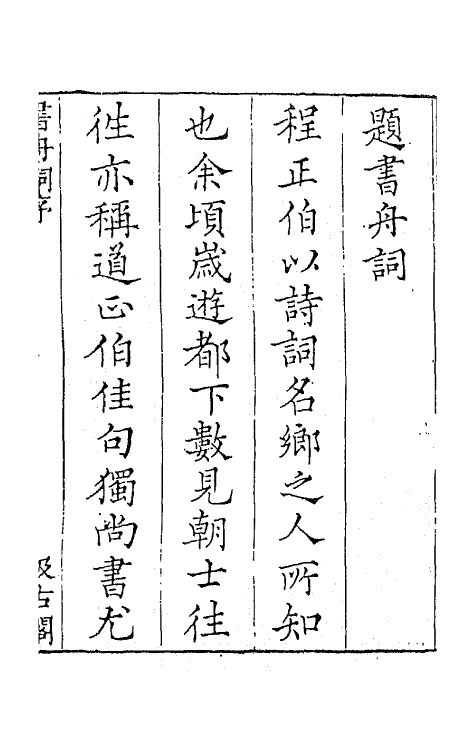 題書舟詞
程正伯以詩詞名鄉之人所知
也余頃歲遊都下數見朝士往
徃亦稱道正伯佳句獨尚書尤
書舟詞序
汲古閣